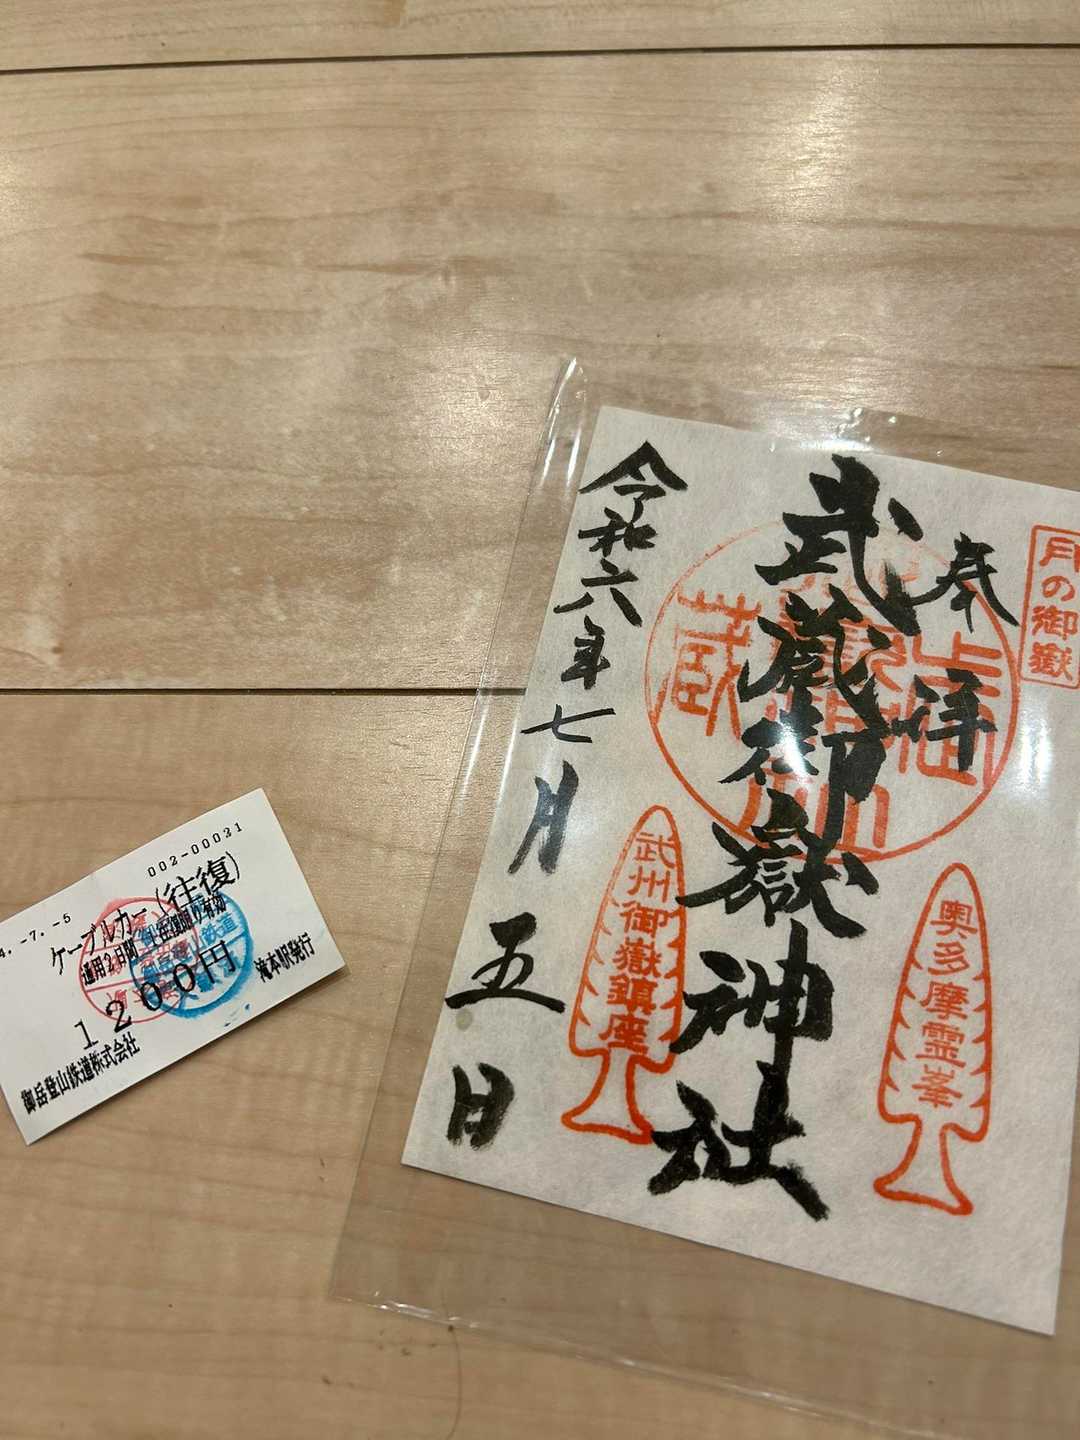 月の御嶽
奉拝
武蔵御嶽神社
奥多摩霊峯
武州御嶽鎮座
令和六年七月五日
002-00031
4.-7.-5
ケーブルカー(往復)
通用2日間
1200円
滝本駅発行
御岳登山鉄道株式会社